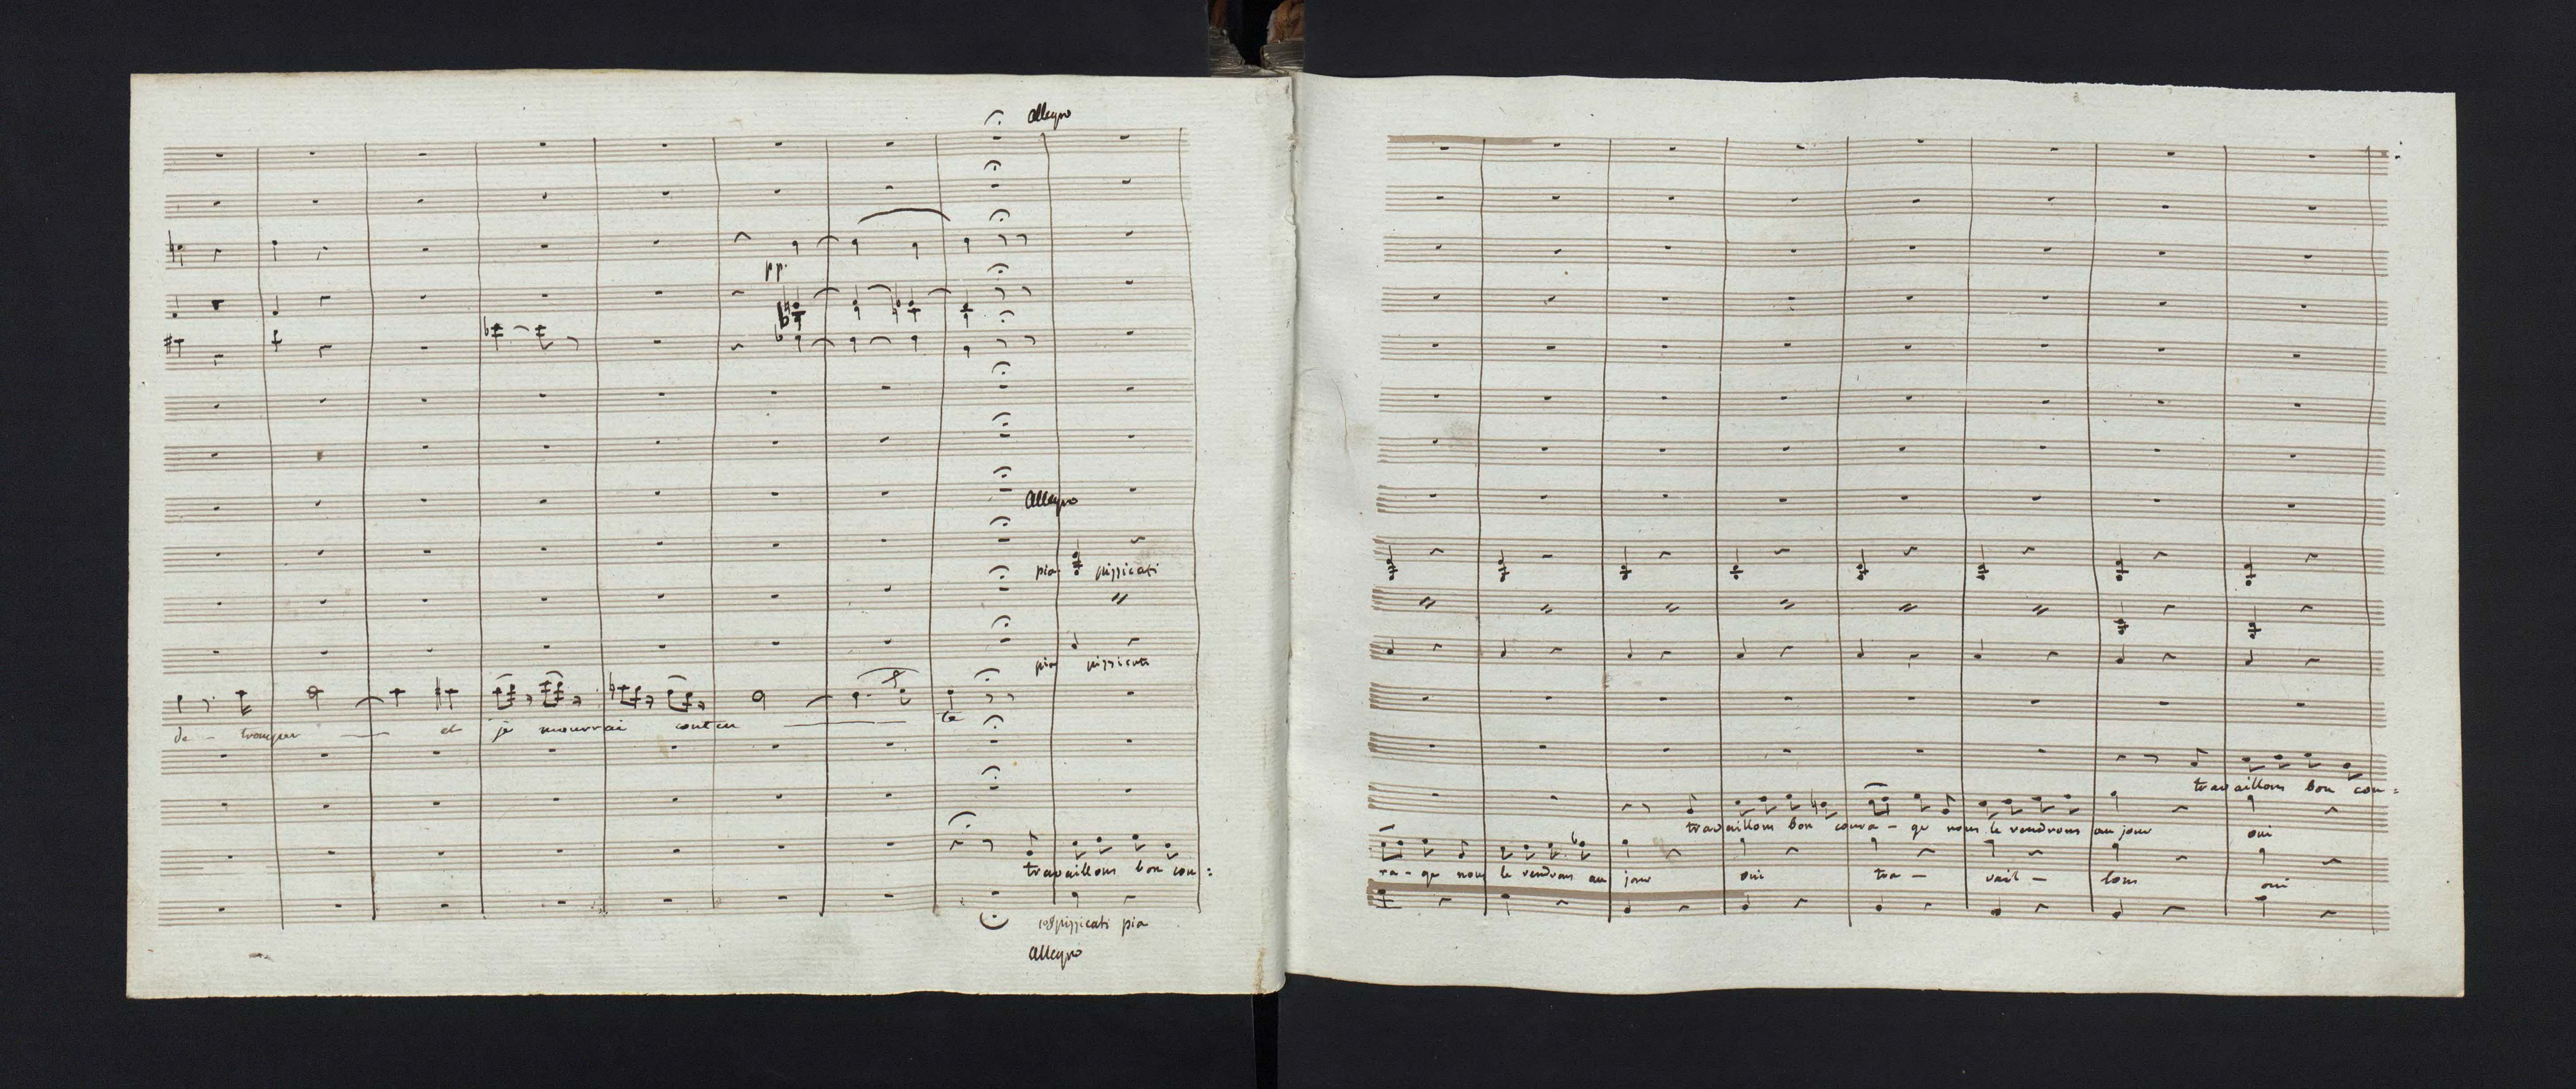 allegro
pp.
allegro
pia pizzicati
pia pizzicati
et je mourrai conten te
travaillons bon cou=
pizzicati pia
allegro
travaillons bon cou=
travaillons bon coura - ge nous le rendrons au jour oui
ra - ge nous le rendrons au jour oui tra - vail - lons oui